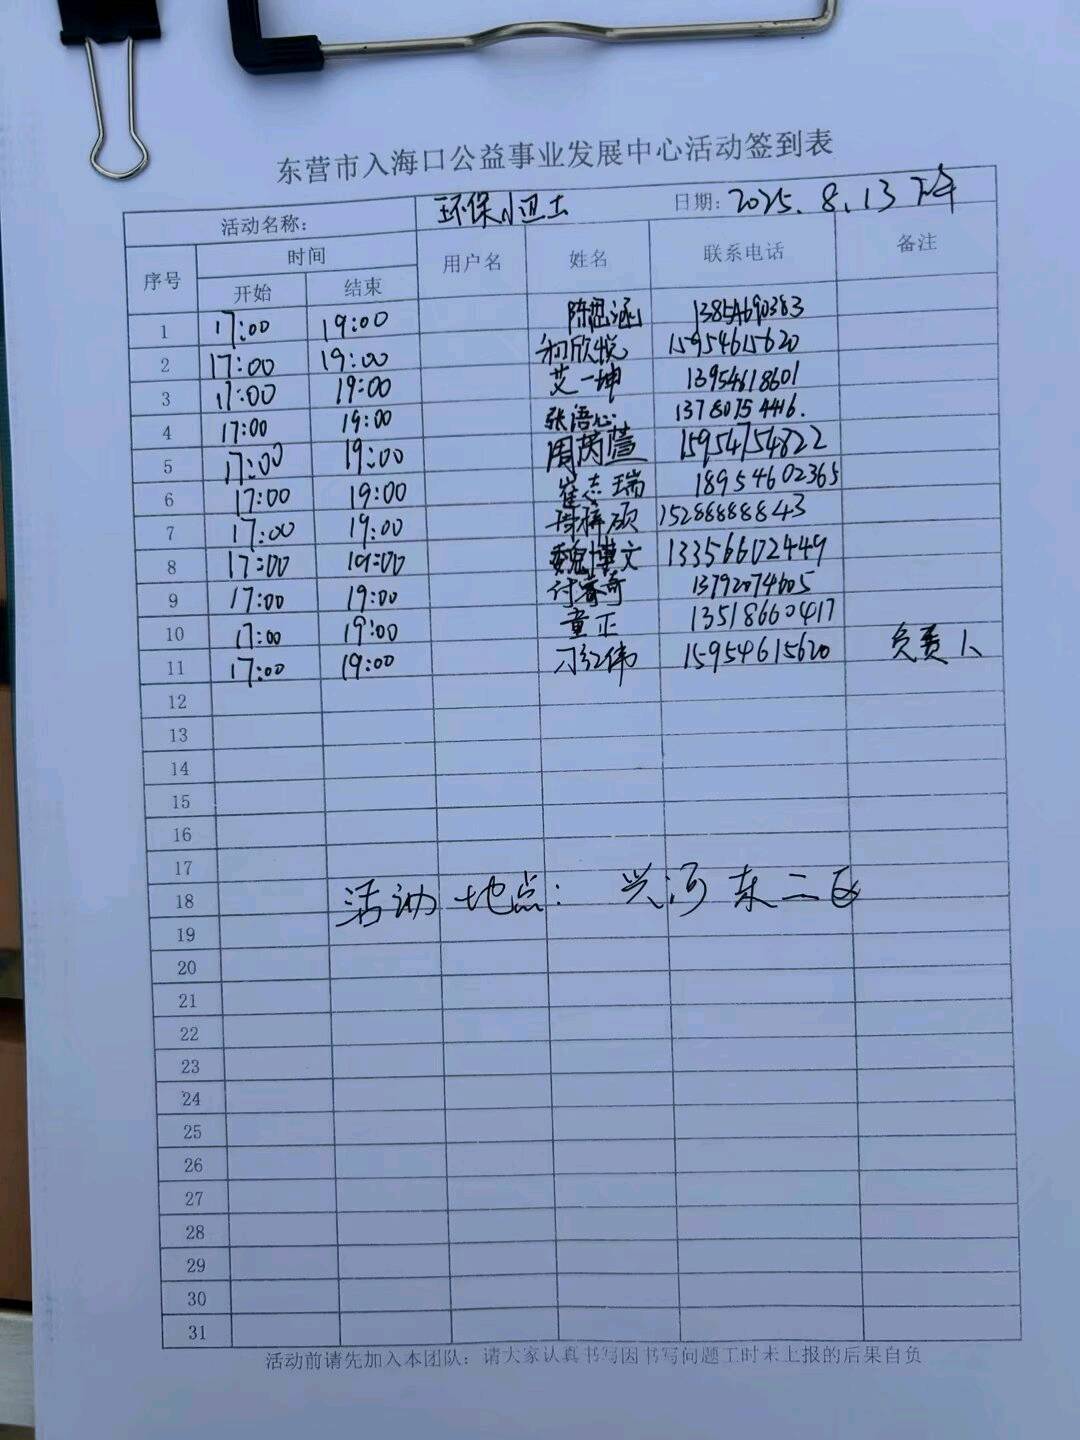 东营市入海口公益事业发展中心活动签到表
活动名称: 环保小卫士 日期: 2025.8.13 下午
序号 时间 用户名 姓名 联系电话 备注
开始 结束
1 17:00 19:00 陈思涵 13854690383
2 17:00 19:00 初欣悦 15954615620
3 17:00 19:00 艾一坤 13954618601
4 17:00 19:00 张语心 13780754416.
5 17:00 19:00 周芮萱 15954754822
6 17:00 19:00 崔志瑞 18954602365
7 17:00 19:00 15288888843
8 17:00 19:00 魏博文 13356602449
9 17:00 19:00 付睿奇 13792074605
10 17:00 19:00 童正 13518660417
11 17:00 19:00 刁红伟 15954615620 负责人
12
13
14
15
16
17
18 活动地点: 兴河东二区
19
20
21
22
23
24
25
26
27
28
29
30
31
活动前请先加入本团队: 请大家认真书写因书写问题工时未上报的后果自负